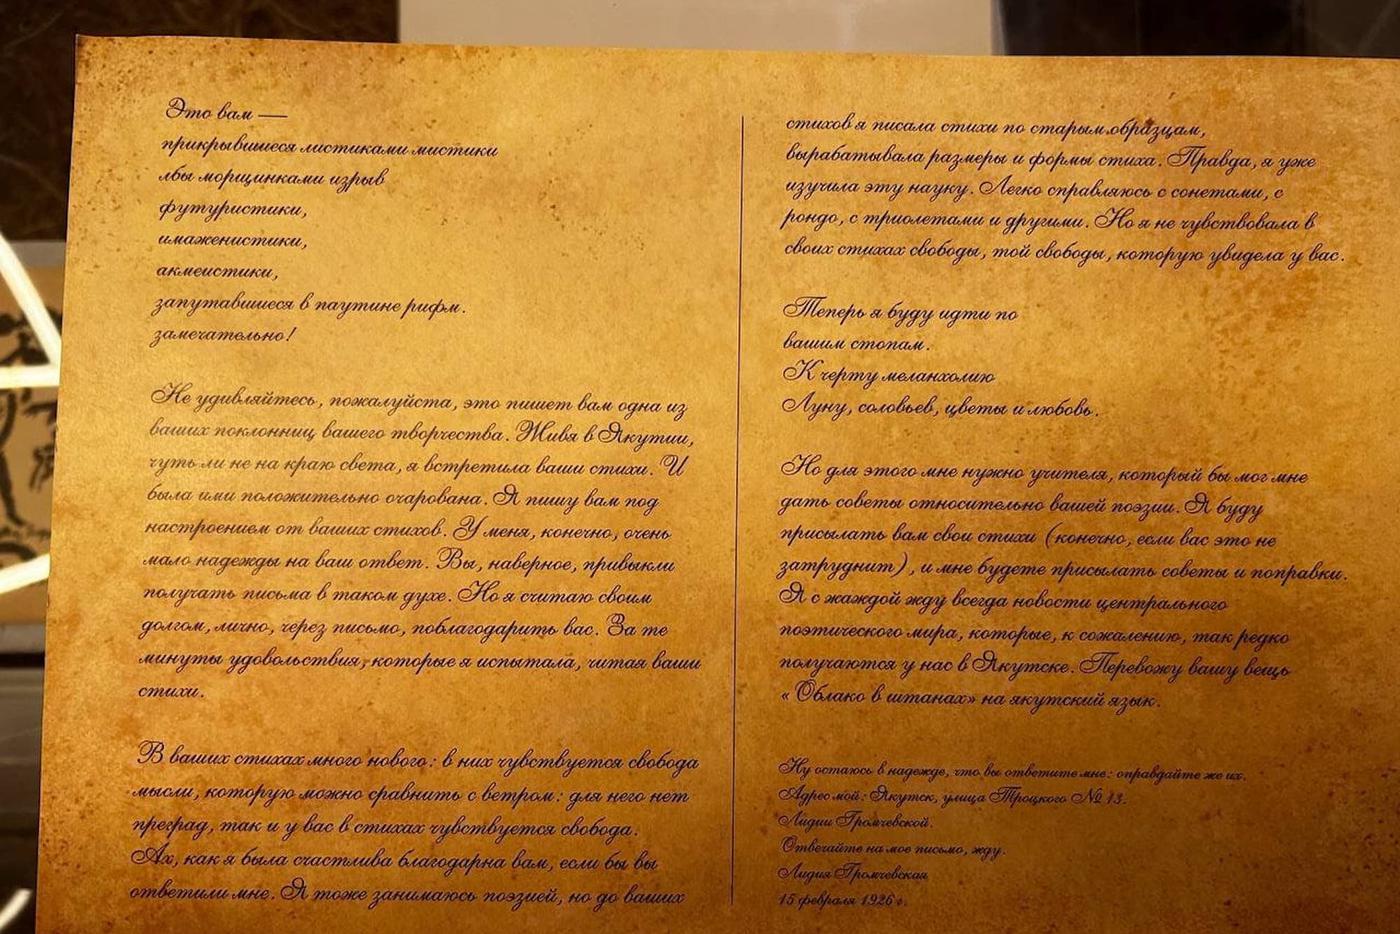 Это вам —
прикрывшиеся листиками мистики
лбы морщинками изрыв
футуристики,
имаженистики,
акмеистики,
запутавшиеся в паутине рифм.
замечательно!
Не удивляйтесь, пожалуйста, это пишет вам одна из
ваших поклонниц вашего творчества. Живя в Якутии,
чуть ли не на краю света, я встретила ваши стихи. И
была ими положительно очарована. Я пишу вам под
настроением от ваших стихов. У меня, конечно, очень
мало надежды на ваш ответ. Вы, наверное, привыкли
получать письма в таком духе. Но я считаю своим
долгом, лично, через письмо, поблагодарить вас. За те
минуты удовольствия, которые я испытала, читая ваши
стихи.
В ваших стихах много нового: в них чувствуется свобода
мысли, которую можно сравнить с ветром: для него нет
преград, так и у вас в стихах чувствуется свобода.
Ах, как я была счастлива благодарна вам, если бы вы
ответили мне. Я тоже занимаюсь поэзией, но до ваших
стихов я писала стихи по старым образцам,
вырабатывала размеры и формы стиха. Правда, я уже
изучила эту науку. Легко справляюсь с сонетами, с
рондо, с триолетами и другими. Но я не чувствовала в
своих стихах свободы, той свободы, которую увидела у вас.
Теперь я буду идти по
вашим стопам.
К черту меланхолию
Луну, соловьев, цветы и любовь.
Но для этого мне нужно учителя, который бы мог мне
дать советы относительно вашей поэзии. Я буду
присылать вам свои стихи (конечно, если вас это не
затруднит), и мне будете присылать советы и поправки.
Я с жаждой жду всегда новости центрального
поэтического мира, которые, к сожалению, так редко
получаются у нас в Якутске. Перевожу вашу вещь
«Облако в штанах» на якутский язык.
Ну остаюсь в надежде, что вы ответите мне: оправдайте же их.
Адрес мой: Якутск, улица Троцкого № 13.
Лидии Громчевской.
Отвечайте на мое письмо, жду.
Лидия Громчевская
15 февраля 1926 г.